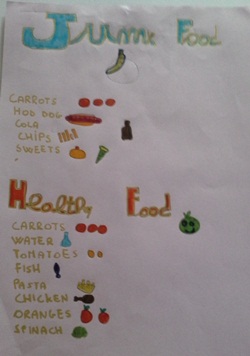 Junk Food
CARROTS
HOD DOG
COLA
CHIPS
SWEETS
Healthy Food
CARROTS
WATER
TOMATOES
FISH
PASTA
CHICKEN
ORANGES
SPINACH